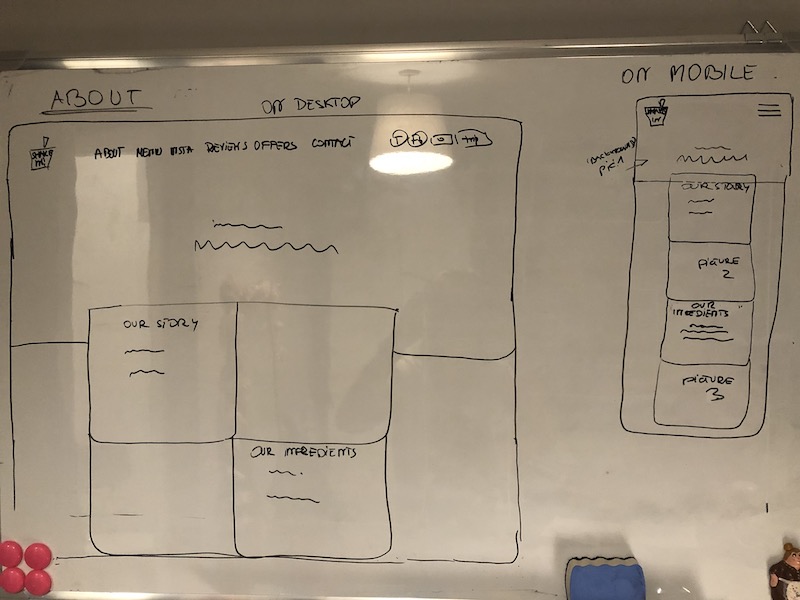 ABOUT
ON DESKTOP
SHAKE IN!
ABOUT MENU INSTA REVIEWS OFFERS CONTACT
OUR STORY
OUR INGREDIENTS
ON MOBILE
SHAKE IN!
(BACKGROUND)
PIC 1
OUR STORY
PICTURE
2
OUR
INGREDIENTS
PICTURE
3